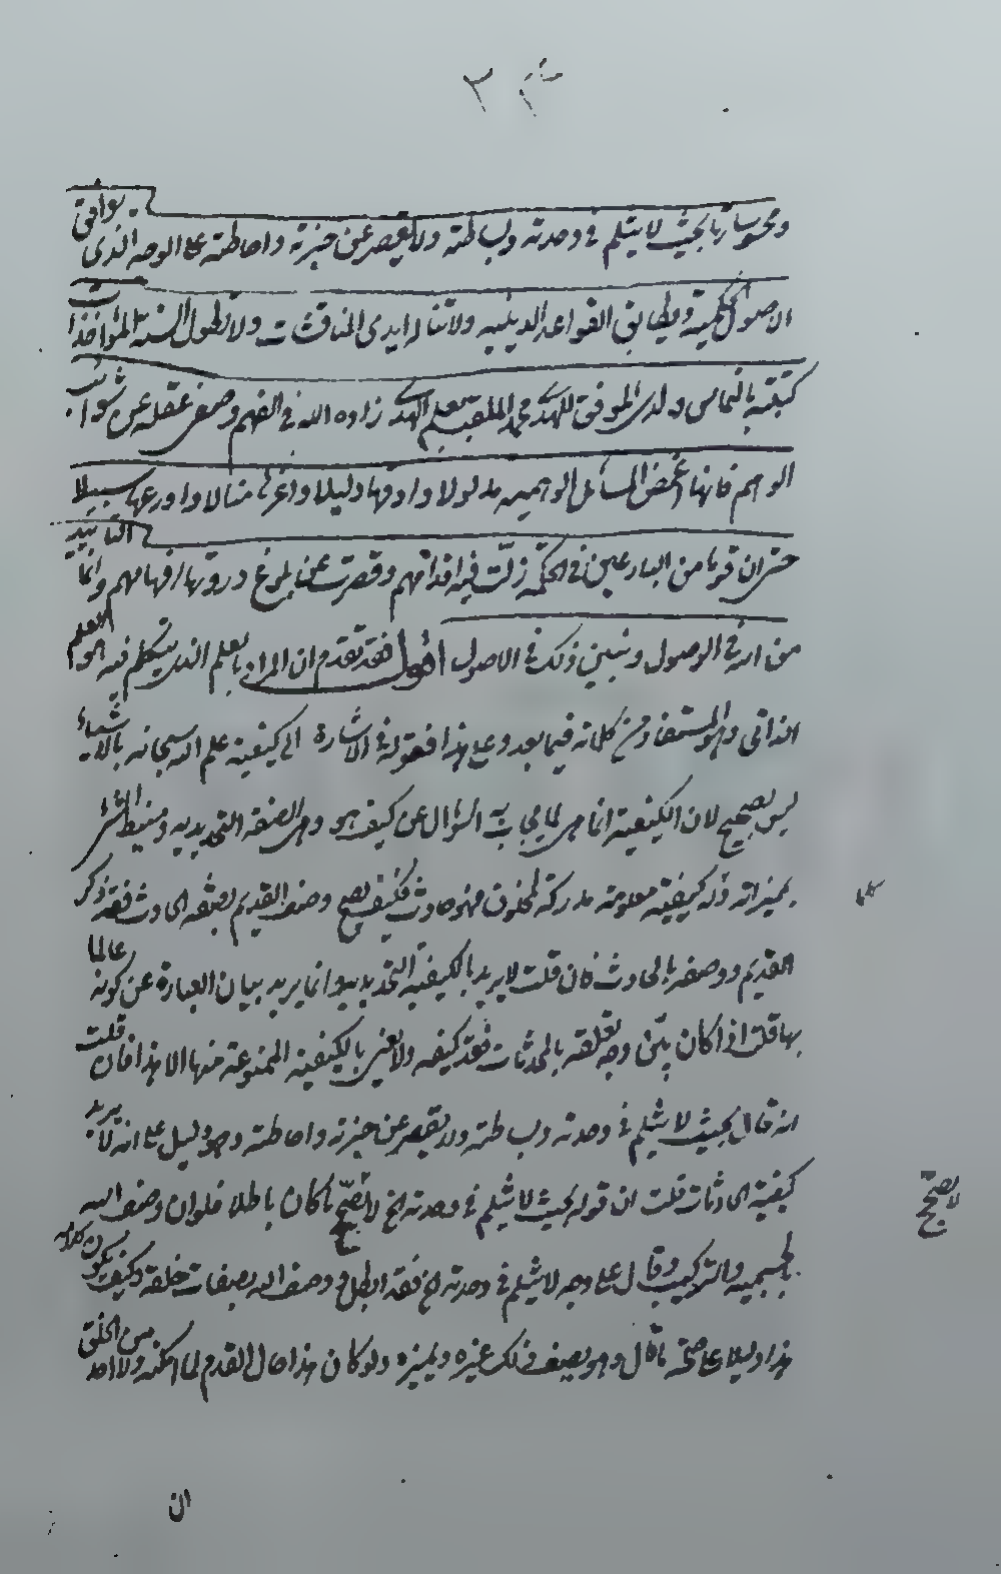 ومحسوساتها بحيث لا ينثلم في وحدته وبساطته ولا يقصر عن حيزته واحاطته على الوجه الذي يوافق
الاصول الحكمية ويطابق القواعد الدينية ولا تناله ايدي المناقشات ولا تطول السنة المؤاخذات
كتبته بالتماس ولدي الموفق للهدى محمد الملقب بعلم الهدى زاده الله في الفهم وصفى عقله عن شوائب
الوهم فانها اغمض المسائل مدلولا وادقها دليلا واعزها منالا واوعرها سبيلا
حتى ان قوما من البارعين في الحكمة زلت فيه اقدامهم وقصرت عن بلوغ ذروتها افهامهم وانما التأييد
من الله في الوصول ونبين ذلك في الاصول اقول فقد تقدم ان المراد بالعلم الذي يتكلم فيه هو العلم
الذاتي وهو المستفاد من كلماته فيما بعد وعلى هذا فقوله في الاشارة الى كيفية علم الله سبحانه بالاشياء
ليس بصحيح لان الكيفية انما هي لما يجاب به السؤال عن كيف هو وهي الصفة التحديدية
بميزاته وله كيفية معلومة مدركة لمخلوق فهو حادث فكيف يصح وصف القديم بصفة الحادث فقد ذكر
القديم ووصفه بالحادث فان قلت لا يريد بالكيفية التحديدية وانما يريد بيان العبارة عن كونه عالما
بها قلت اذا كان بين وجه تعلقه بالمحدثات فقد كيفه ولا نعني بالكيفية الممنوعة منها الا هذا فان قلت
انه قال بحيث لا ينثلم في وحدته وبساطته ولا يقصر عن حيزته واحاطته وهو دليل على انه لا يريد
كيفية الحادثات قلت ان قوله بحيث لا ينثلم في وحدته الخ لا يصحح ما كان باطلا فلو ان وصف الله
بالجسمية والتركيب وقال على وجه لا ينثلم في وحدته الخ فقد ابطل في وصف الله بصفات خلقه وكيف يكون كلامه
هذا دليلا على صحة ما قال وهو يصف ذلك غيره ويميزه ولو كان هذا حال القدم لما امكنه ولا احد من الخلق
لا يصحح
ان